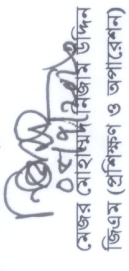 মেজর মোহাম্মদ নিজাম উদ্দিন
জিএম (প্রশিক্ষণ ও অপারেশন)